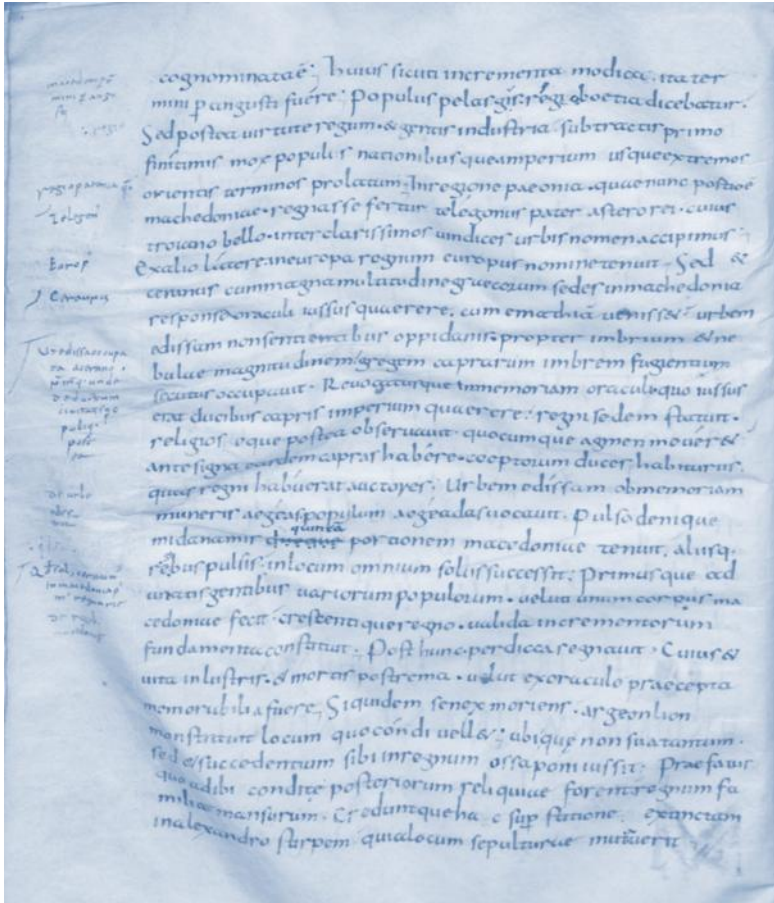 cognominata ē; huius sicuti incrementa modica. ita ter
mini p angusti fuere; Populus pelasgi. regio boetia dicebatur.
Sed postea uirtute regum. & gentis industria. subtractis primo
finitimis mox populis nationibusque imperium usque extremos
orientis terminos prolatum; In regione paeonia. quae nunc portio ē
machedoniae. regnasse fertur telegonus pater asteropei. cuius
troiano bello. inter clarissimos uindices urbis nomen accipimus;
Ex alio latere in europa regnum europus nomine tenuit. Sed &
caranus cum magna multitudine graecorum sedes in machedonia
responso oraculi iussus quaerere. cum emathiā uenisset. urbem
edissam non sentientibus oppidanis. propter imbrium & ne
bulae magnitudinem. gregem caprarum imbrem fugientium
secutus occupauit. Reuocatusque in memoriam oraculi. quo iussus
erat ducibus capris imperium quaerere. regni sedem statuit.
religioseque postea obseruauit. quocumque agmen mouer&
ante signa easdem capras habere. coeptorum duces habiturus.
quas regni habuerat auctores; Urbem edissam ob memoriam
muneris aegeas. populum aegeadas uocauit. Pulso denique
quia ea
mida nam is portionem macedoniae tenuit. aliisq.
regibus pulsis. in locum omnium solus successit; Primusque ad
unatis gentibus uariorum populorum. ueluti unum corpus ma
cedoniae fecit. crescentique regno. ualida incrementorum
fundamenta constituit. Post hunc perdicca regnauit. Cuius &
uita inlustris. & mortis postrema. uelut ex oraculo praecepta
memorabilia fuere; Siquidem senex moriens. argeo filio
monstrauit locum quo condi uell&; ibique non sua tantum.
sed & succedentium sibi in regnum ossa poni iussit. Praefatus
quoad ibi condite posteriorum reliquiae forent regnum fa
milia mansurum. Creduntque hac superstitione. extinctam
in alexandro stirpem quia locum sepulturae mutauerit